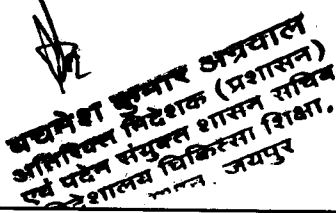 पचनेश कुमार अग्रवाल
अतिरिक्त निदेशक (प्रशासन)
एवं पदेन संयुक्त शासन सचिव
निदेशालय चिकित्सा शिक्षा.
जयपुर